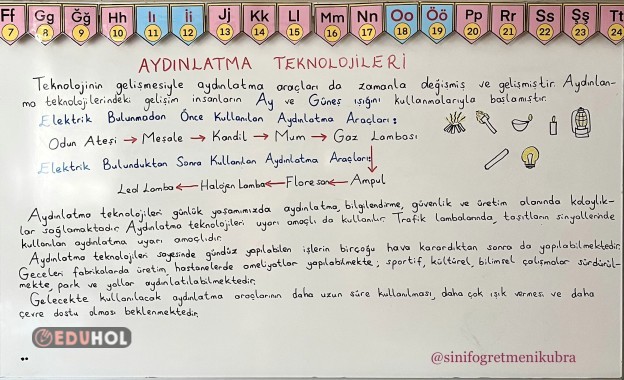 Ff Gg Ğğ Hh Iı İi Jj Kk Ll Mm Nn Oo Öö Pp Rr Ss Şş Tt
7 8 9 10 11 12 13 14 15 16 17 18 19 20 21 22 23 24
AYDINLATMA TEKNOLOJİLERİ
Teknolojinin gelişmesiyle aydınlatma araçları da zamanla değişmiş ve gelişmiştir. Aydınlan-
ma teknolojilerindeki gelişim insanların Ay ve Güneş ışığını kullanmalarıyla başlamıştır.
Elektrik Bulunmadan Önce Kullanılan Aydınlatma Araçları:
Odun Ateşi → Meşale → Kandil → Mum → Gaz Lambası
Elektrik Bulunduktan Sonra Kullanılan Aydınlatma Araçları:
Led Lamba ← Halojen Lamba ← Floresan ← Ampul
Aydınlatma teknolojileri günlük yaşamımızda aydınlatma, bilgilendirme, güvenlik ve üretim alanında kolaylık-
lar sağlamaktadır. Aydınlatma teknolojileri uyarı amaçlı da kullanılır. Trafik lambalarında, taşıtların sinyallerinde
kullanılan aydınlatma uyarı amaçlıdır.
Aydınlatma teknolojileri sayesinde gündüz yapılabilen işlerin birçoğu hava karardıktan sonra da yapılabilmektedir.
Geceleri fabrikalarda üretim, hastanelerde ameliyatlar yapılabilmekte; sportif, kültürel, bilimsel çalışmalar sürdürül-
mekte, park ve yollar aydınlatılabilmektedir.
Gelecekte kullanılacak aydınlatma araçlarının daha uzun süre kullanılması, daha çok ışık vermesi ve daha
çevre dostu olması beklenmektedir.
EDUHOL
@sinifogretmenikubra